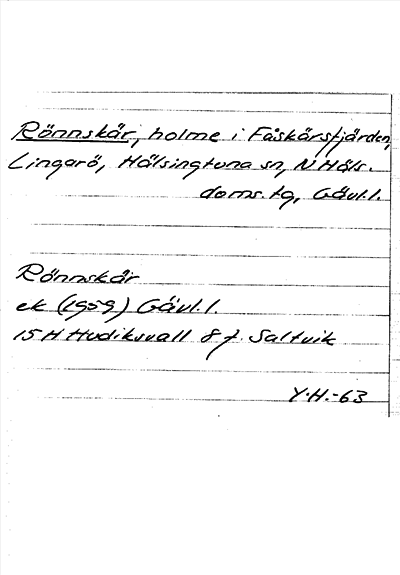 Rönnskär, holme i Fåskärsfjärden,
Lingarö, Hälsingtuna sn, N Häls.
doms. tg, Gävl.l.
Rönnskär
ek (1959) Gävl.l.
15 H Hudiksvall 8 f. Saltvik
Y.H.-63